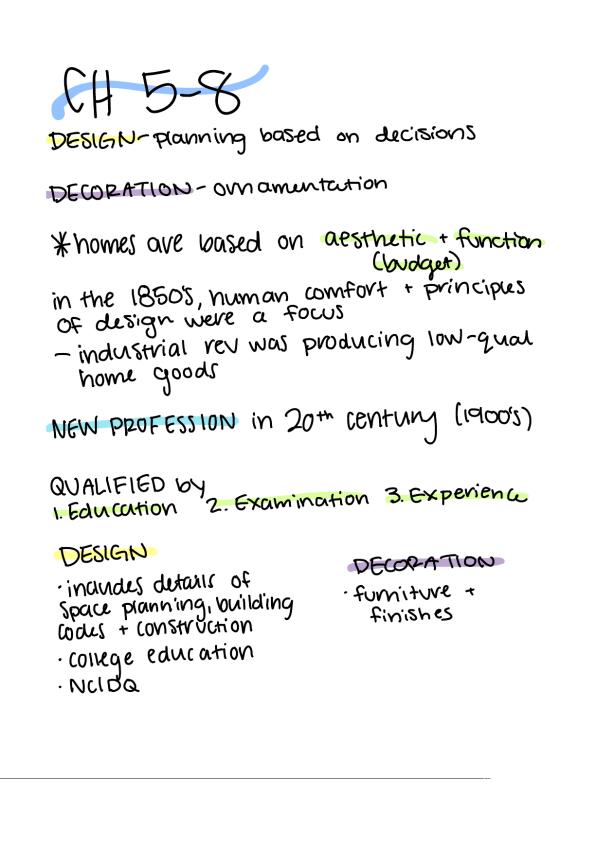 CH 5-8
DESIGN - planning based on decisions
DECORATION - ornamentation
* homes are based on aesthetic + function
(budget)
in the 1850's, human comfort + principles
of design were a focus
- industrial rev was producing low-qual
home goods
NEW PROFESSION in 20th century (1900's)
QUALIFIED by
1. Education 2. Examination 3. Experience
DESIGN
· includes details of
space planning, building
codes + construction
· college education
· NCIDQ
DECORATION
· furniture +
finishes